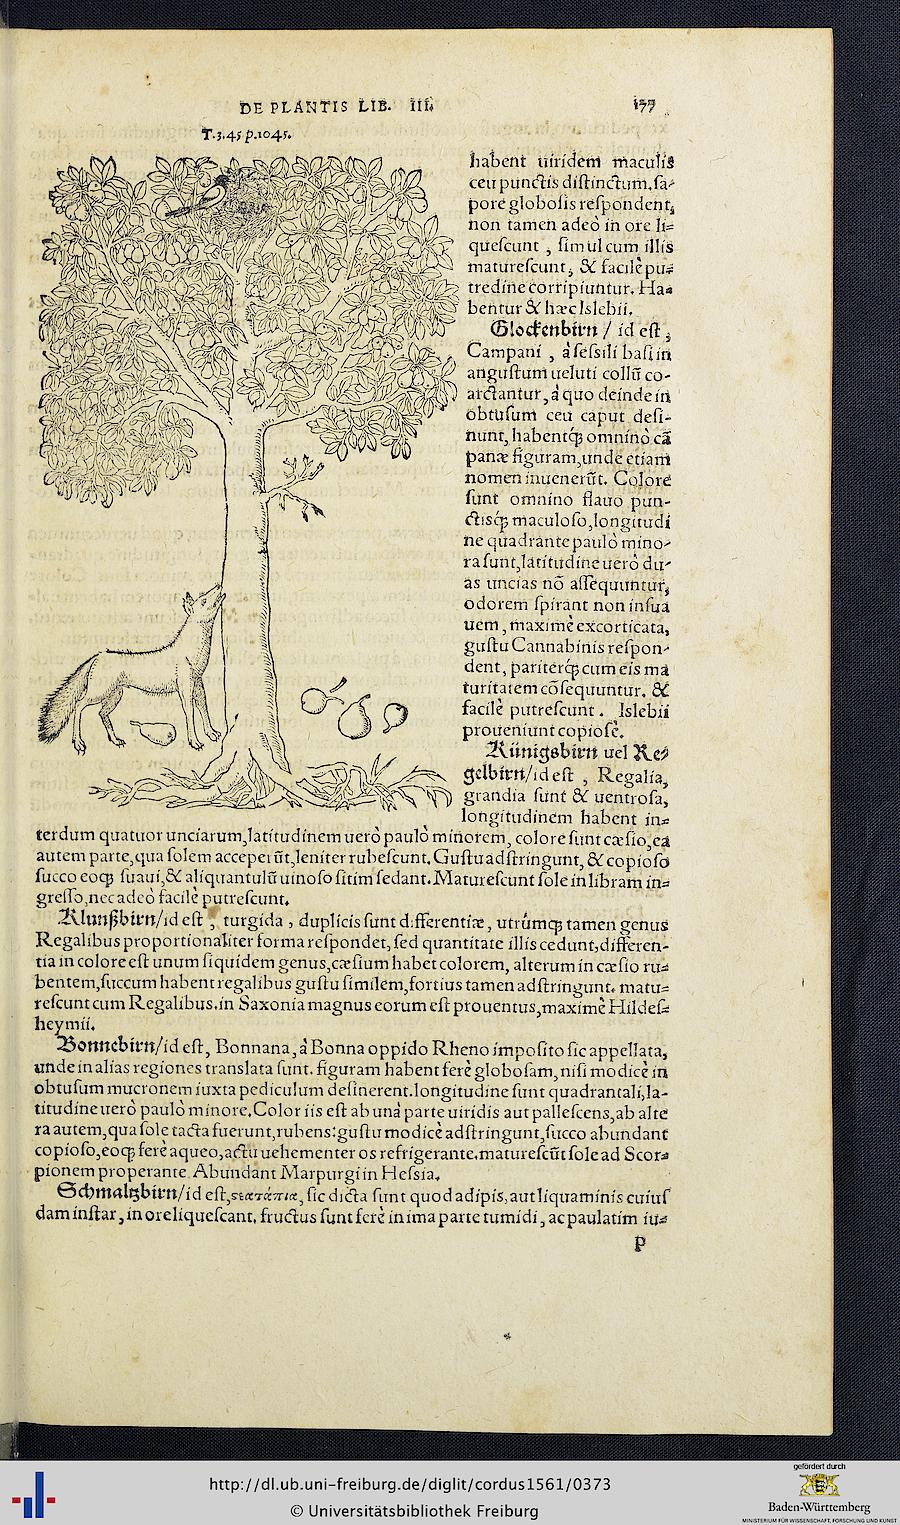 DE PLANTIS LIB. III. 177
T.3.45 p.1045.
habent uiridem maculis
ceu punctis distinctum. sa-
pore globosis respondent,
non tamen adeò in ore li=
quescunt, simul cum illis
maturescunt, & facilè pu=
tredine corripiuntur. Ha=
bentur & hæc Islebii.
Glockenbirn / id est,
Campani, à sessili basi in
angustum ueluti collũ co-
arctantur, à quo deinde in
obtusum ceu caput desi-
nunt, habentq́; omninò cã
panæ figuram, unde etiam
nomen inuenerũt. Colore
sunt omnino flauo pun-
ctisq́; maculoso, longitudi
ne quadrante paulò mino-
ra sunt, latitudine uerò du-
as uncias nõ assequuntur,
odorem spirant non insua
uem, maximè excorticata,
gustu Cannabinis respon-
dent, pariterq́; cum eis ma
turitatem cõsequuntur. &
facilè putrescunt. Islebii
proueniunt copiosè.
Künigsbirn uel Re=
gelbirn/id est, Regalia,
grandia sunt & uentrosa,
longitudinem habent in=
terdum quatuor unciarum, latitudinem uerò paulò minorem, colore sunt cæsio, ea
autem parte, qua solem acceperũt, leniter rubescunt. Gustu adstringunt, & copioso
succo eoq; suaui, & aliquantulũ uinoso sitim sedant. Maturescunt sole in libram in=
gresso, nec adeò facilè putrescunt.
Klunßbirn/id est, turgida, duplicis sunt differentiæ, utrúmq; tamen genus
Regalibus proportionaliter forma respondet, sed quantitate illis cedunt, differen-
tia in colore est unum siquidem genus, cæsium habet colorem, alterum in cæsio ru=
bentem, succum habent regalibus gustu similem, fortius tamen adstringunt. matu=
rescunt cum Regalibus. in Saxonia magnus eorum est prouentus, maximè Hildes=
heymii.
Bonnebirn/id est, Bonnana, à Bonna oppido Rheno imposito sic appellata,
unde in alias regiones translata sunt. figuram habent ferè globosam, nisi modicè in
obtusum mucronem iuxta pediculum desinerent. longitudine sunt quadrantali, la-
titudine uerò paulò minore. Color iis est ab unà parte uiridis aut pallescens, ab alte
ra autem, qua sole tacta fuerunt, rubens: gustu modicè adstringunt, succo abundant
copioso, eoq; ferè aqueo, actu uehementer os refrigerante. maturescũt sole ad Scor=
pionem properante. Abundant Marpurgi in Hessia.
Schmaltzbirn/id est, στεατάπια, sic dicta sunt quod adipis, aut liquaminis cuius
dam instar, in ore liquescant. fructus sunt ferè in ima parte tumidi, ac paulatim iu=
P
http://dl.ub.uni-freiburg.de/diglit/cordus1561/0373
© Universitätsbibliothek Freiburg
gefördert durch
Baden-Württemberg
MINISTERIUM FÜR WISSENSCHAFT, FORSCHUNG UND KUNST